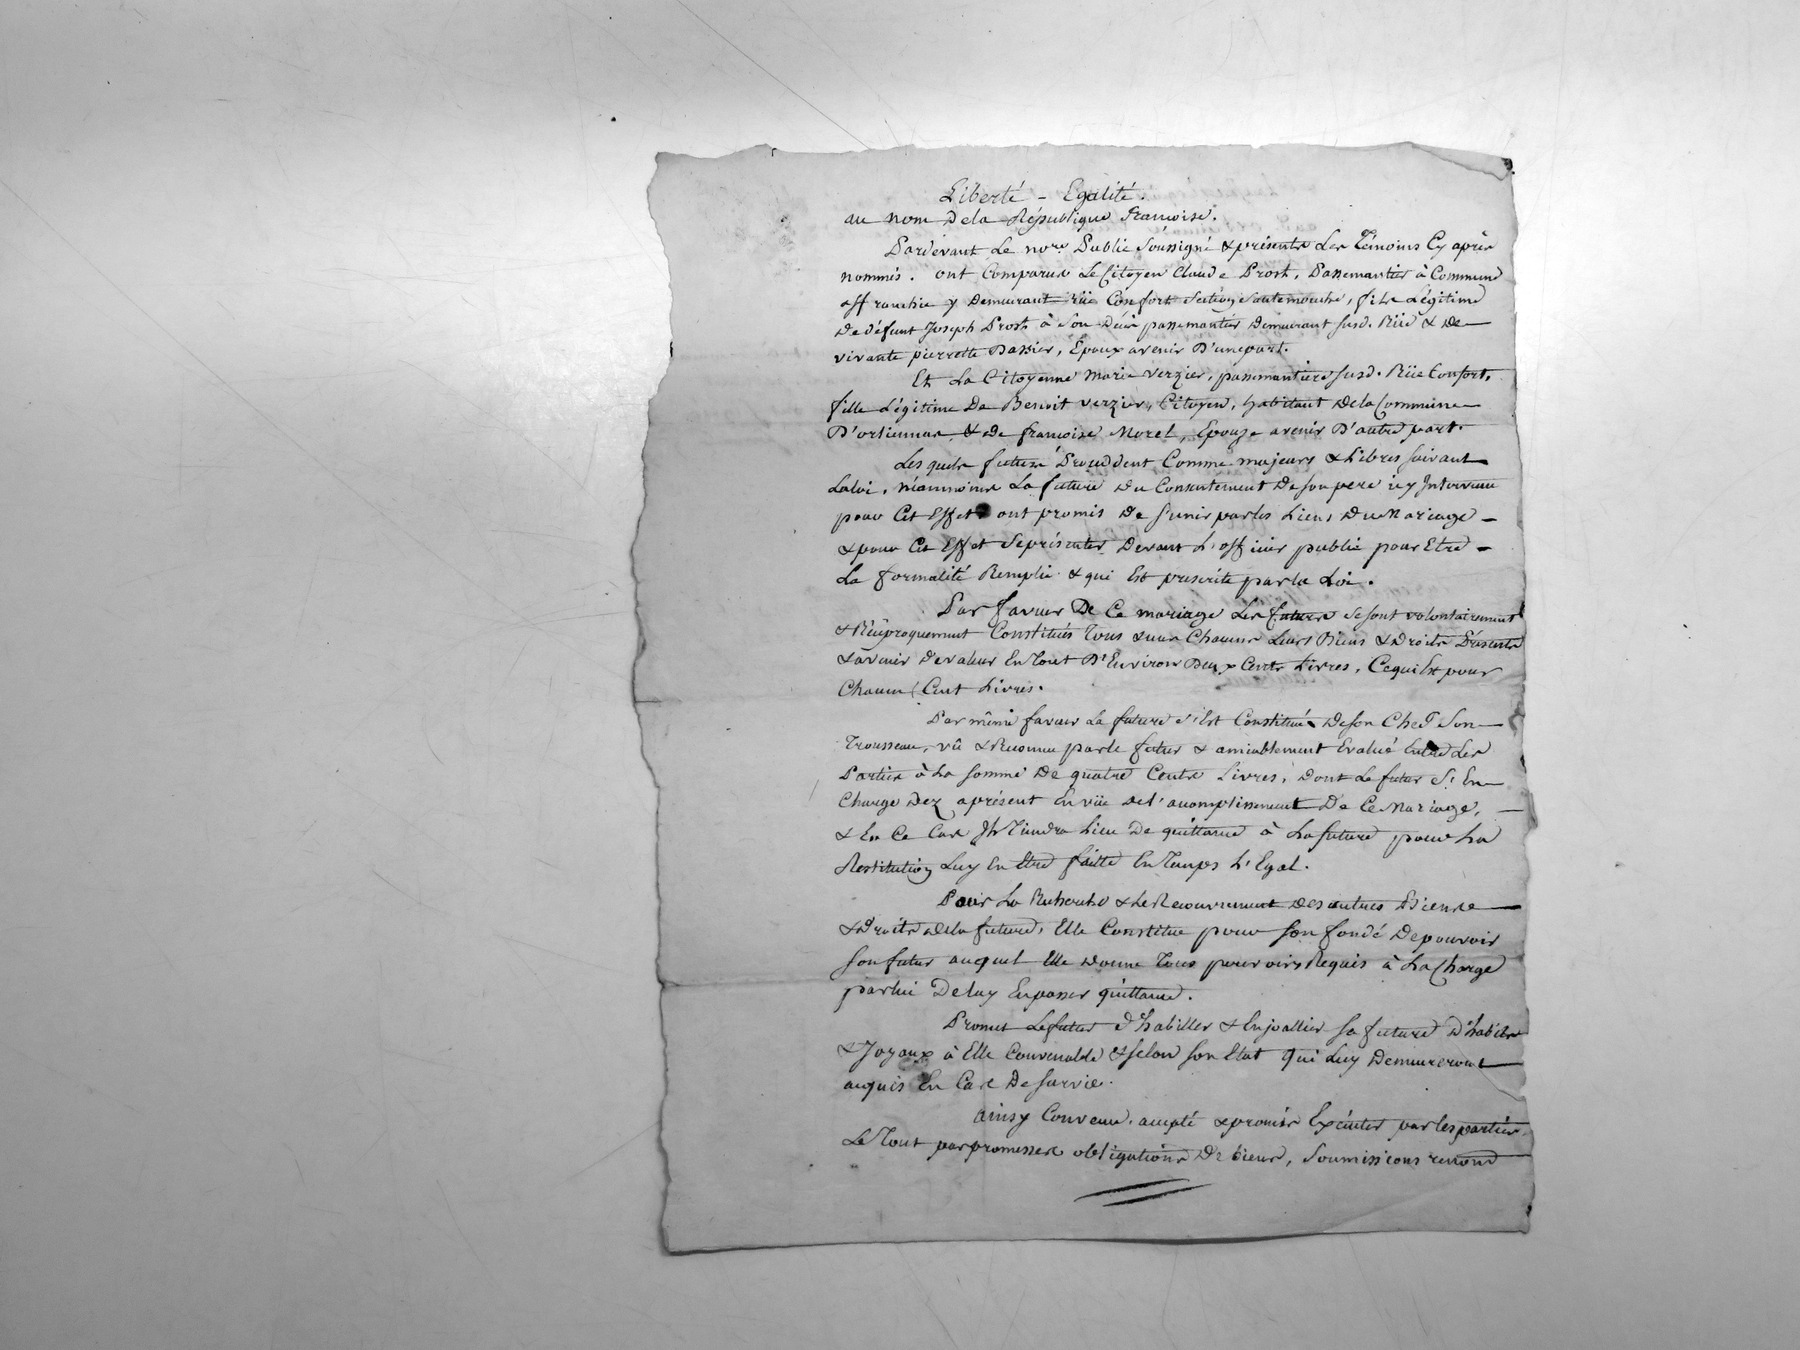 Liberté - Egalité.
au nom de la République francoise.
Pardevant Le no.re Public Soussigné & présents Les Témoins Cy après
nommés. ont Comparus Le Citoyen Claude Prost, Passemantier à Commune
affranchie y demeurant rüe Confort Section, fils Légitime
de défunt Joseph Prost à son décès passemantier demeurant susd. Rüe & de
vivante pierrette Dassier, Epoux avenir D'une part.
Et La Citoyenne marie verzier, passmantiere susd. Rüe Confort,
fille Légitime De Benoit verzier, Citoyen, habitant de la Commune
& de francoise Morel, Epouze avenir D'autre part.
Les quels futurs Procédent Comme majeurs & Libres suivant
La loi, néanmoins La future du Consentement De son pere icy Intervenu
pour Cet Effet ont promis De s'unir par les Liens Du Mariage
& pour Cet Effet se présenter Devant L'officier public pour Etre
La formalité Remplie & qui Est prescrite par la Loi.
Par faveur De Ce mariage Les futurs se sont volontairement
& Réciproquement Constitués Tous & uns Chacuns Leurs Biens & Droits Présents
& avenir de valeur En Tout D'Environ Deux Cents Livres, Ce qui Est pour
Chacun Cent Livres.
Par même faveur La future s'Est Constitué De son Chef Son
Trousseau, vû & Reconnu par le futur & amiablement Evalué Entre Les
Parties à La somme De quatre Cents Livres, dont Le futur S'En
Charge dez aprésent En vüe de l'accomplissement De Ce Mariage,
& En Ce Cas Il Tiendra Lieu De quittance à La future pour La
Restitution Luy En Etre faitte En Temps L'Egal.
Pour La Recherche & Le Recouvrement des autres Biens
& Droits de la future, Elle Constitue pour son fondé De pouvoir
son futur auquel Elle donne Tous pouvoirs Requis à La Charge
par lui De luy En passer quittance.
Promet Le futur d'habiller & Enjoallier sa future D'habits
& Joyaux à Elle Convenable & selon son Etat qui Luy Demeureront
acquis En Cas De survie.
ainsy Convenu, accepté & promis Exécuter par les parties,
Le Tout par promesses obligations De biens, Soumissions renon